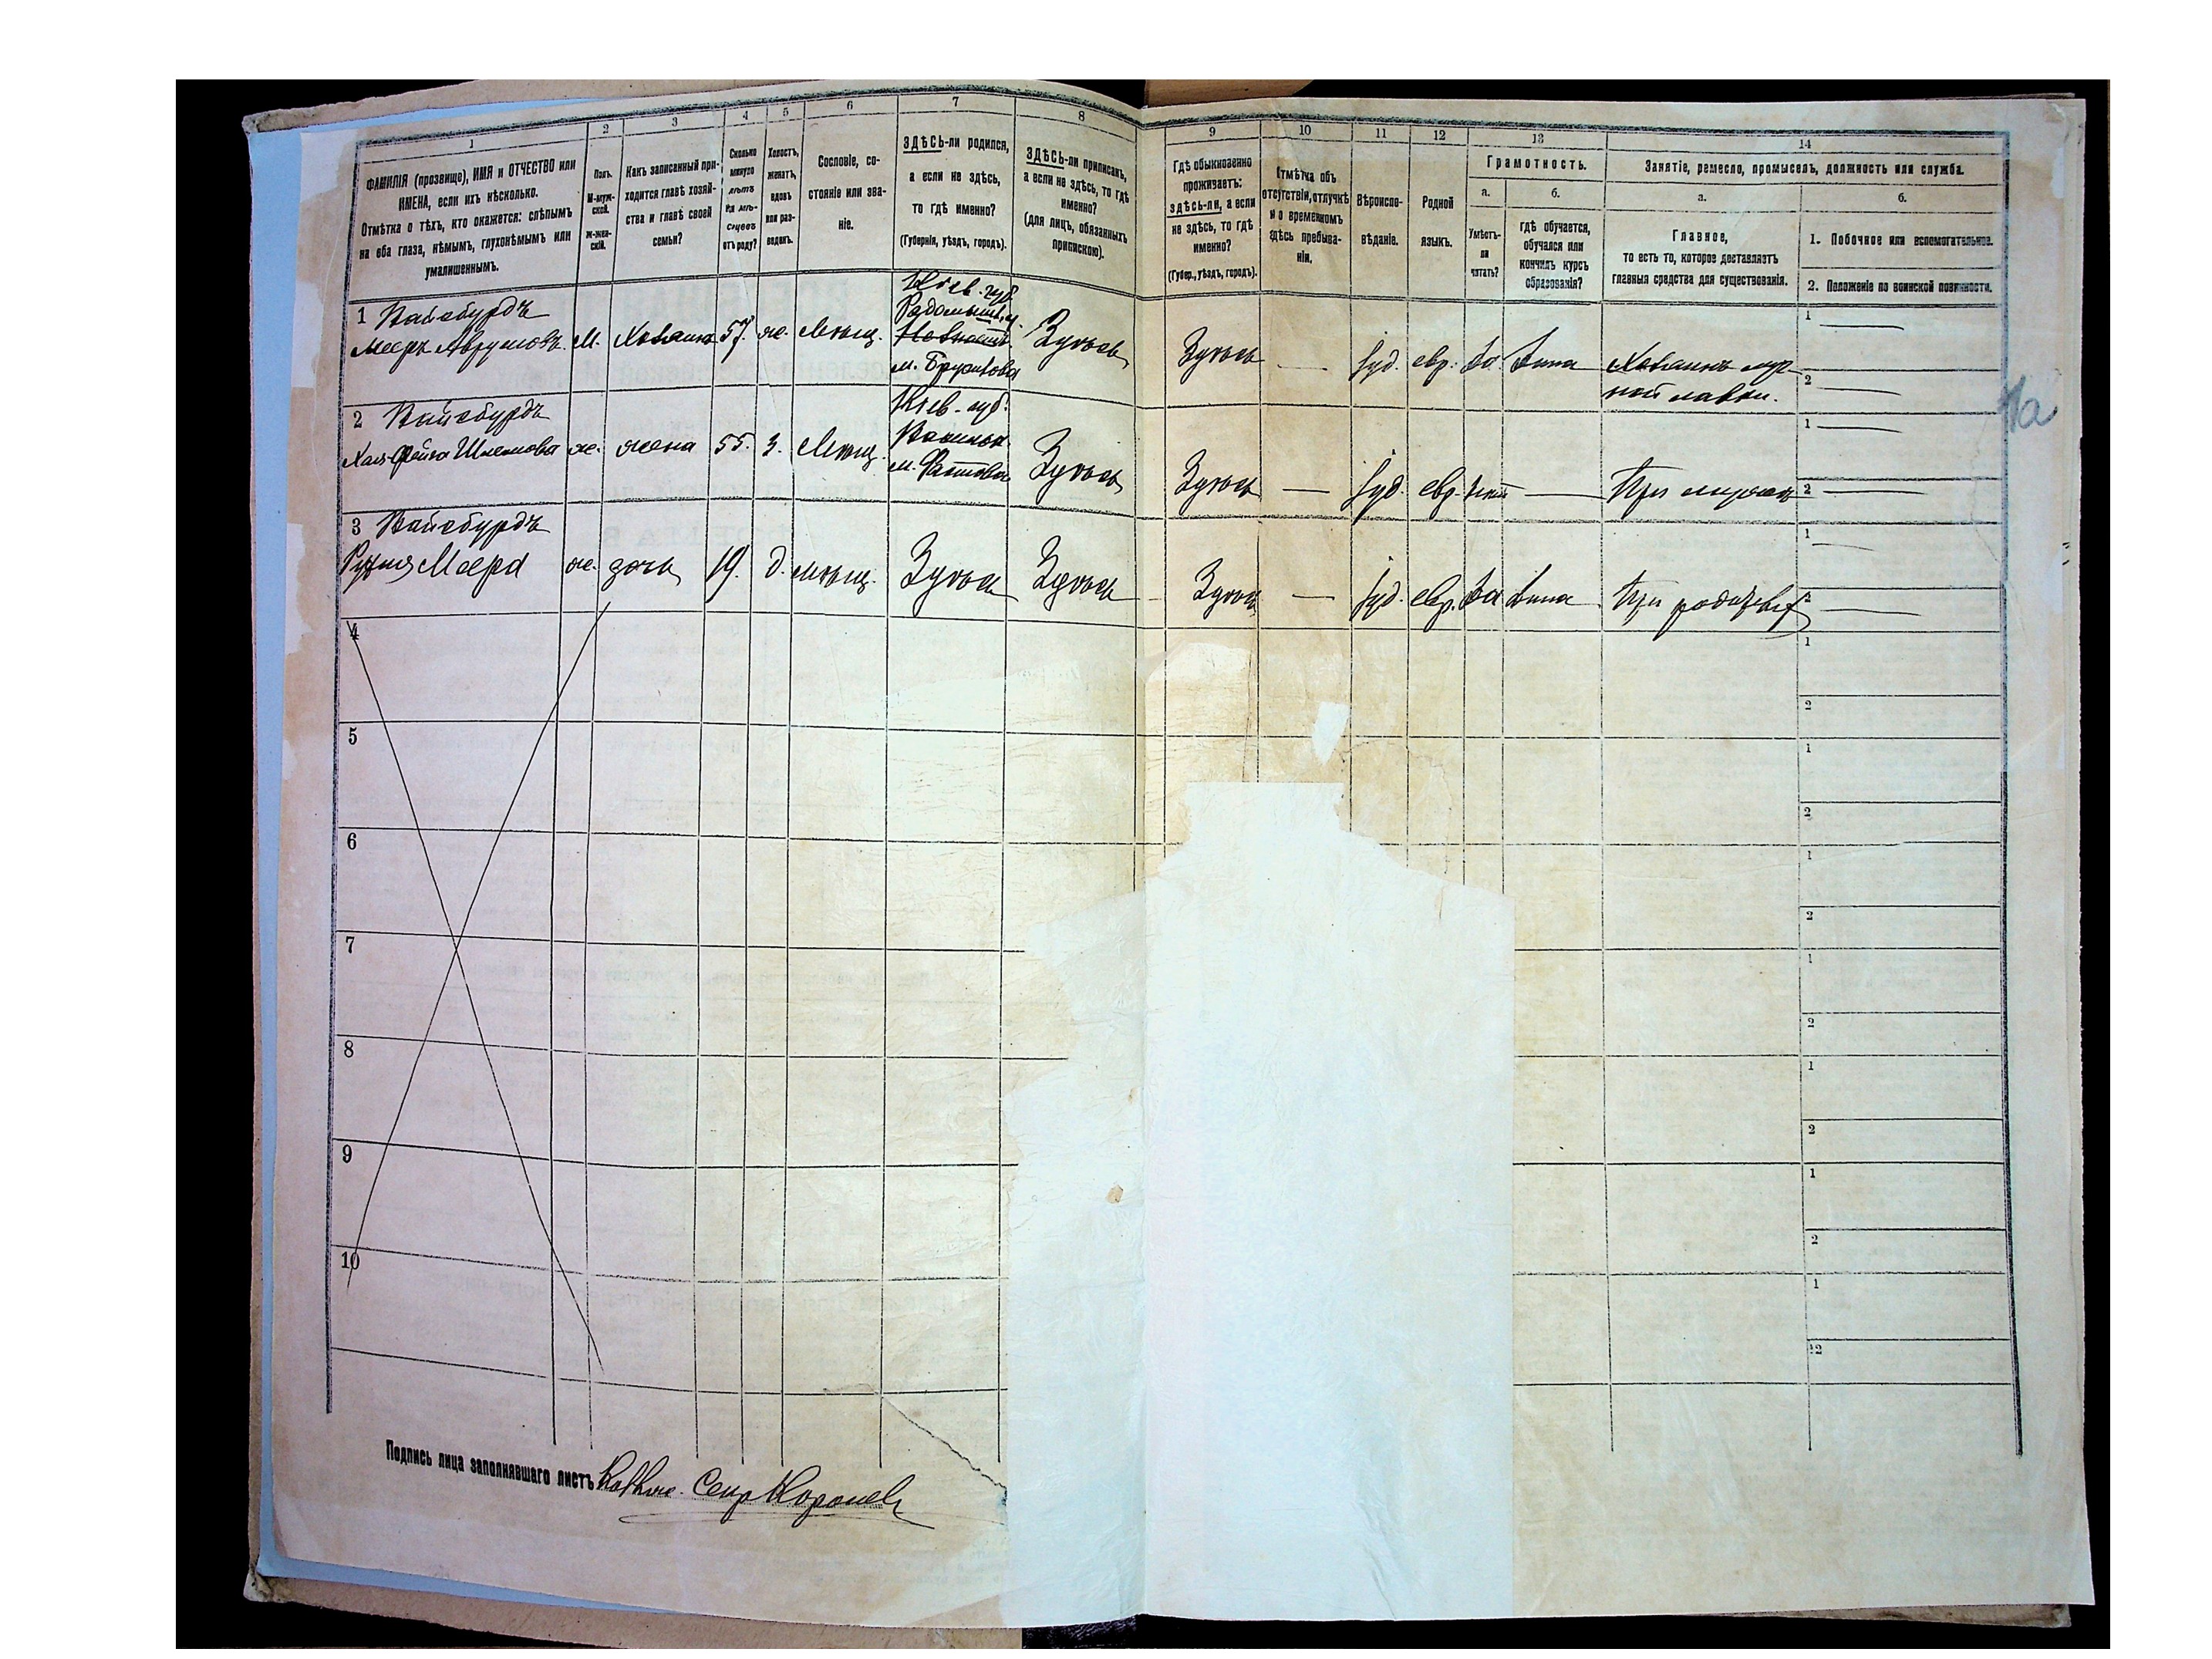 1
2
3
4
5
6
7
8
9
10
11
12
13
14
ФАМИЛІЯ (прозвище), ИМЯ и ОТЧЕСТВО или
ИМЕНА, если ихъ нѣсколько.
Отмѣтка о тѣхъ, кто окажется: слѣпымъ
на оба глаза, нѣмымъ, глухонѣмымъ или
умалишеннымъ.
Полъ.
М-муж-
ской.
Ж-жен-
скій.
Какъ записанный при-
ходится главѣ хозяй-
ства и главѣ своей
семьи?
Сколько
минуло
лѣтъ
или мѣ-
сяцевъ
отъ роду?
Холостъ,
женатъ,
вдовъ
или раз-
веденъ.
Сословіе, со-
стояніе или зва-
ніе.
ЗДѢСЬ-ли родился,
а если не здѣсь,
то гдѣ именно?
(Губернія, уѣздъ, городъ).
ЗДѢСЬ-ли приписанъ,
а если не здѣсь, то гдѣ
именно?
(для лицъ, обязанныхъ
припискою).
Гдѣ обыкновенно
проживаетъ:
здѣсь-ли, а если
не здѣсь, то гдѣ
именно?
(Губер., уѣздъ, городъ).
Отмѣтка объ
отсутствіи, отлучкѣ
и о временномъ
здѣсь пребыва-
ніи.
Вѣроиспо-
вѣданіе.
Родной
языкъ.
Грамотность.
а.
б.
Умѣетъ-
ли
читать?
гдѣ обучается,
обучался или
кончилъ курсъ
образованія?
Занятіе, ремесло, промыселъ, должность или служба.
а.
б.
Главное,
то есть то, которое доставляетъ
главныя средства для существованія.
1. Побочное или вспомогательное.
2. Положеніе по воинской повинности.
1 Вайсбурдъ
Мееръ Аврумовъ
М.
Хозяинъ
57.
ж.
Мѣщ.
Кіев. губ.
Радомысл. у.
м. Брусилова
Здѣсь
Здѣсь
Іуд.
евр.
Да.
Дома
Хозяинъ муч-
ной лавки.
1
2
2 Вайсбурдъ
Хая-Фейга Шлемова
ж.
жена
55.
З.
Мѣщ.
Кіев. губ.
Васильк.
м. Фастова
Здѣсь
Здѣсь
Іуд.
евр.
Нѣтъ
При мужѣ
1
2
3 Вайсбурдъ
Меера
ж.
дочь
19.
д.
мѣщ.
Здѣсь
Здѣсь
Здѣсь
Іуд.
евр.
Да
Дома
При родителяхъ
1
2
11а
4
1
2
5
1
2
6
1
2
7
1
2
8
1
2
9
1
2
10
1
2
Подпись лица заполнявшаго листъ